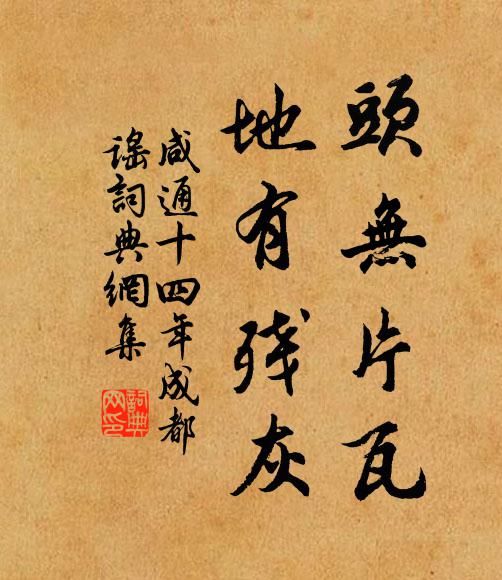 頭無片瓦
地有残灰
咸通十四年成都
謡詞典網集
詞典網印